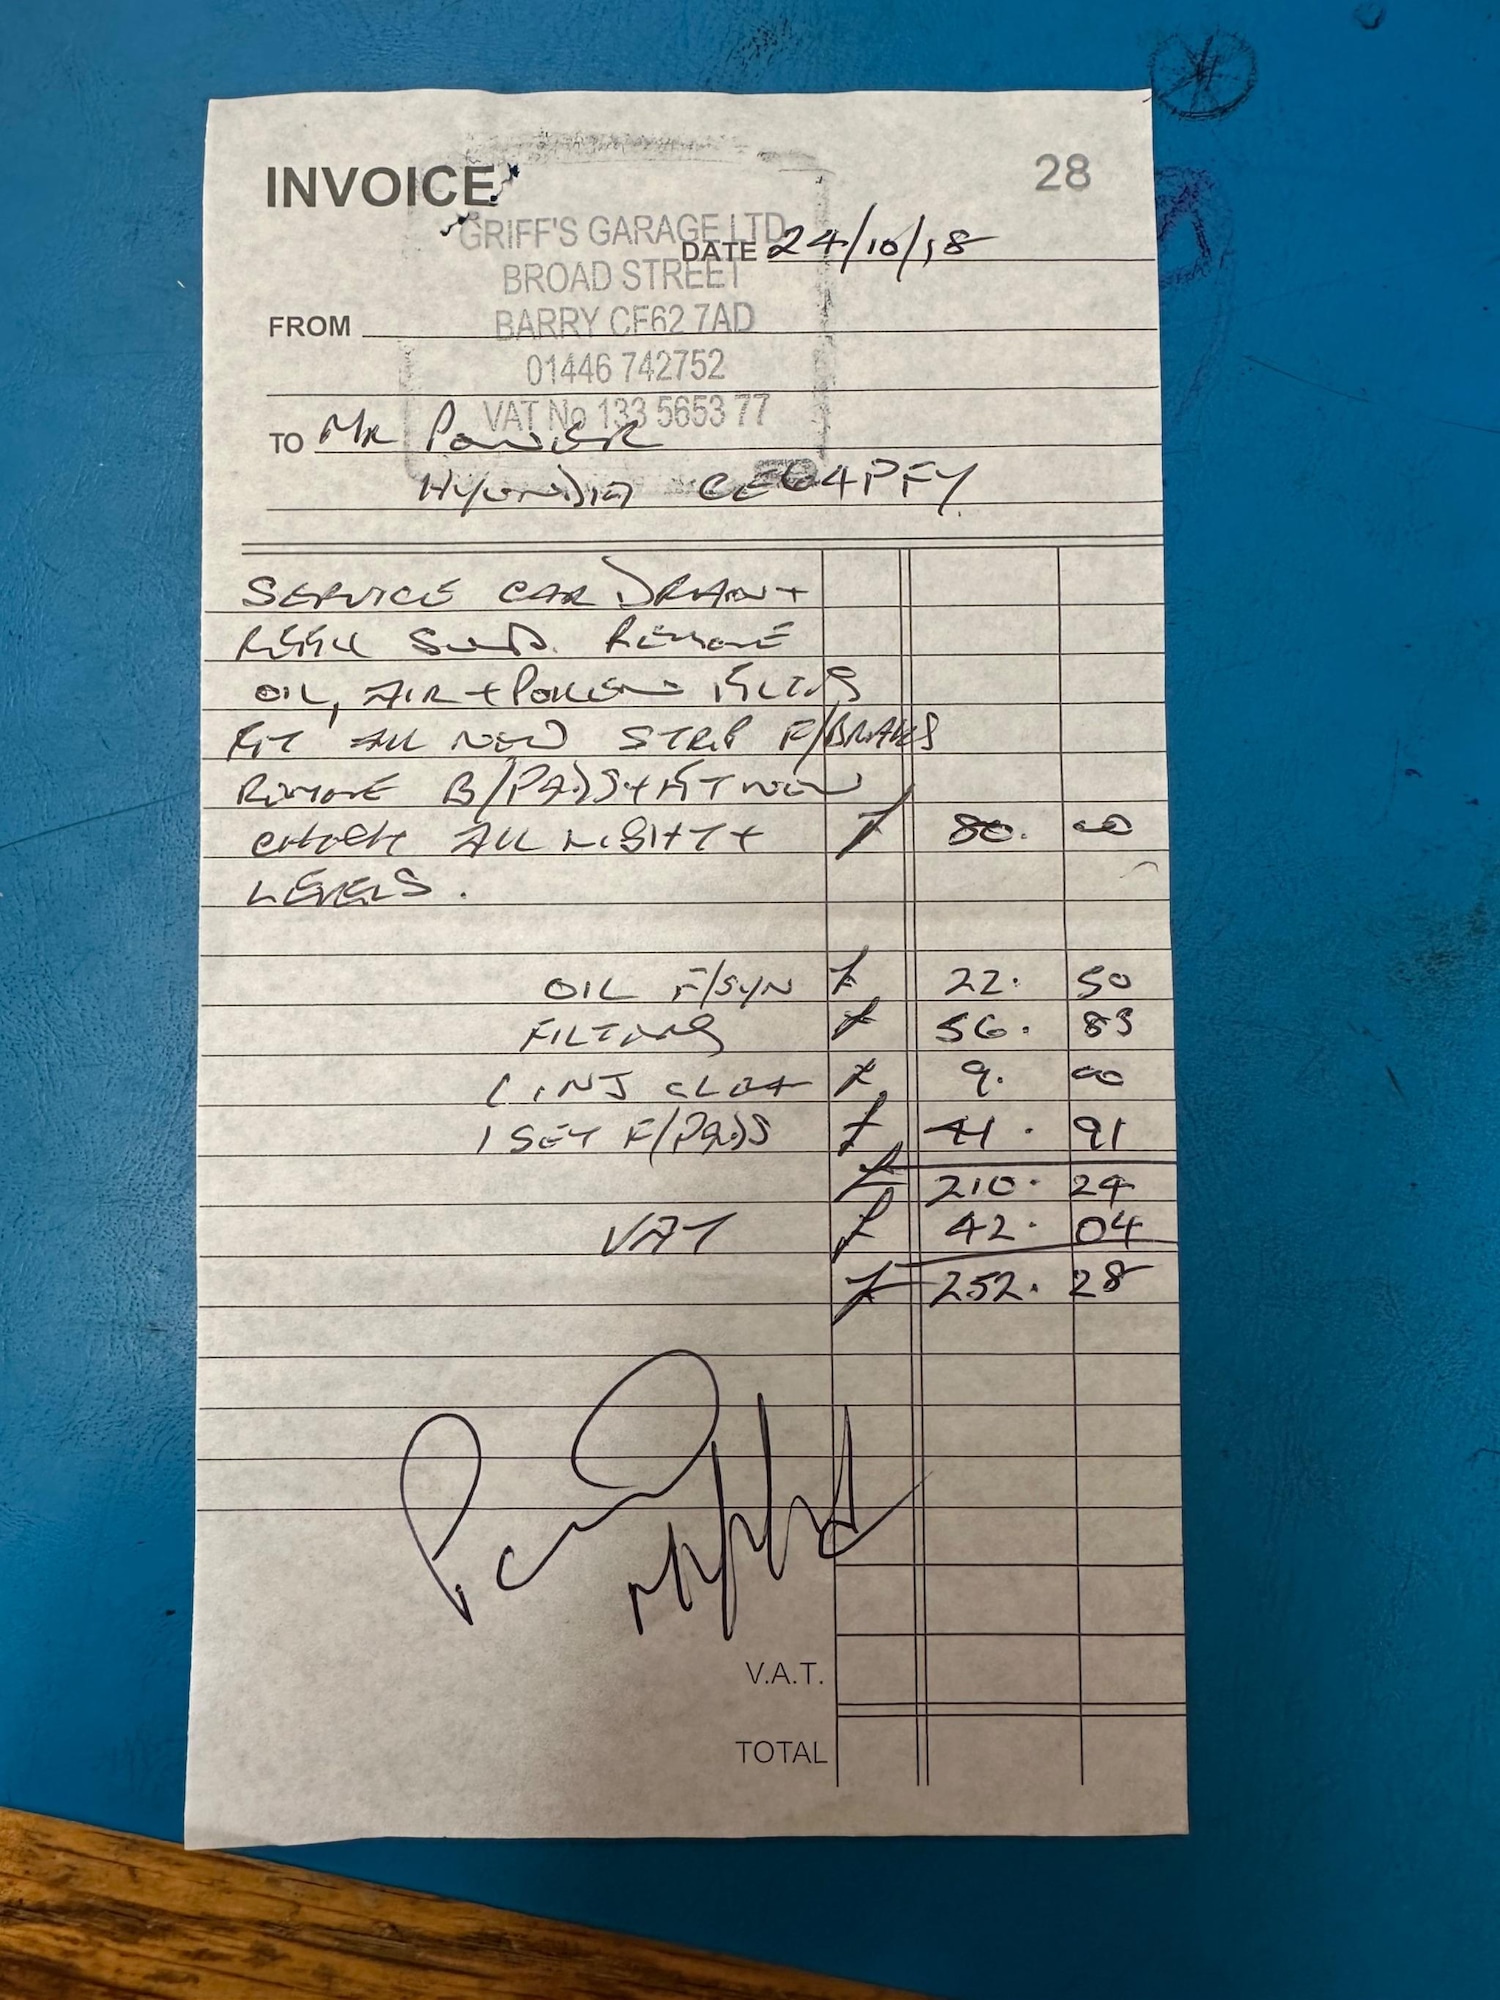 INVOICE
28
GRIFF'S GARAGE LTD
DATE 24/10/18
BROAD STREET
FROM
BARRY CF62 7AD
01446 742752
VAT No 133 5653 77
TO MR POWER
HYUNDIA CE64PFY
SERVICE CAR DRAIN +
REFILL SUMP. REMOVE
OIL, AIR + POLLEN FILTERS
FIT ALL NEW STRIP F/BRAKES
REMOVE B/PADS + FIT NEW
CHECK ALL LIGHTS + £ 80. 00
LEVELS.
OIL F/SYN £ 22. 50
FILTERS £ 56. 83
1 INJ CLEA £ 9. 00
1 SET F/PADS £ 41. 91
£ 210. 24
VAT £ 42. 04
£ 252. 28
V.A.T.
TOTAL